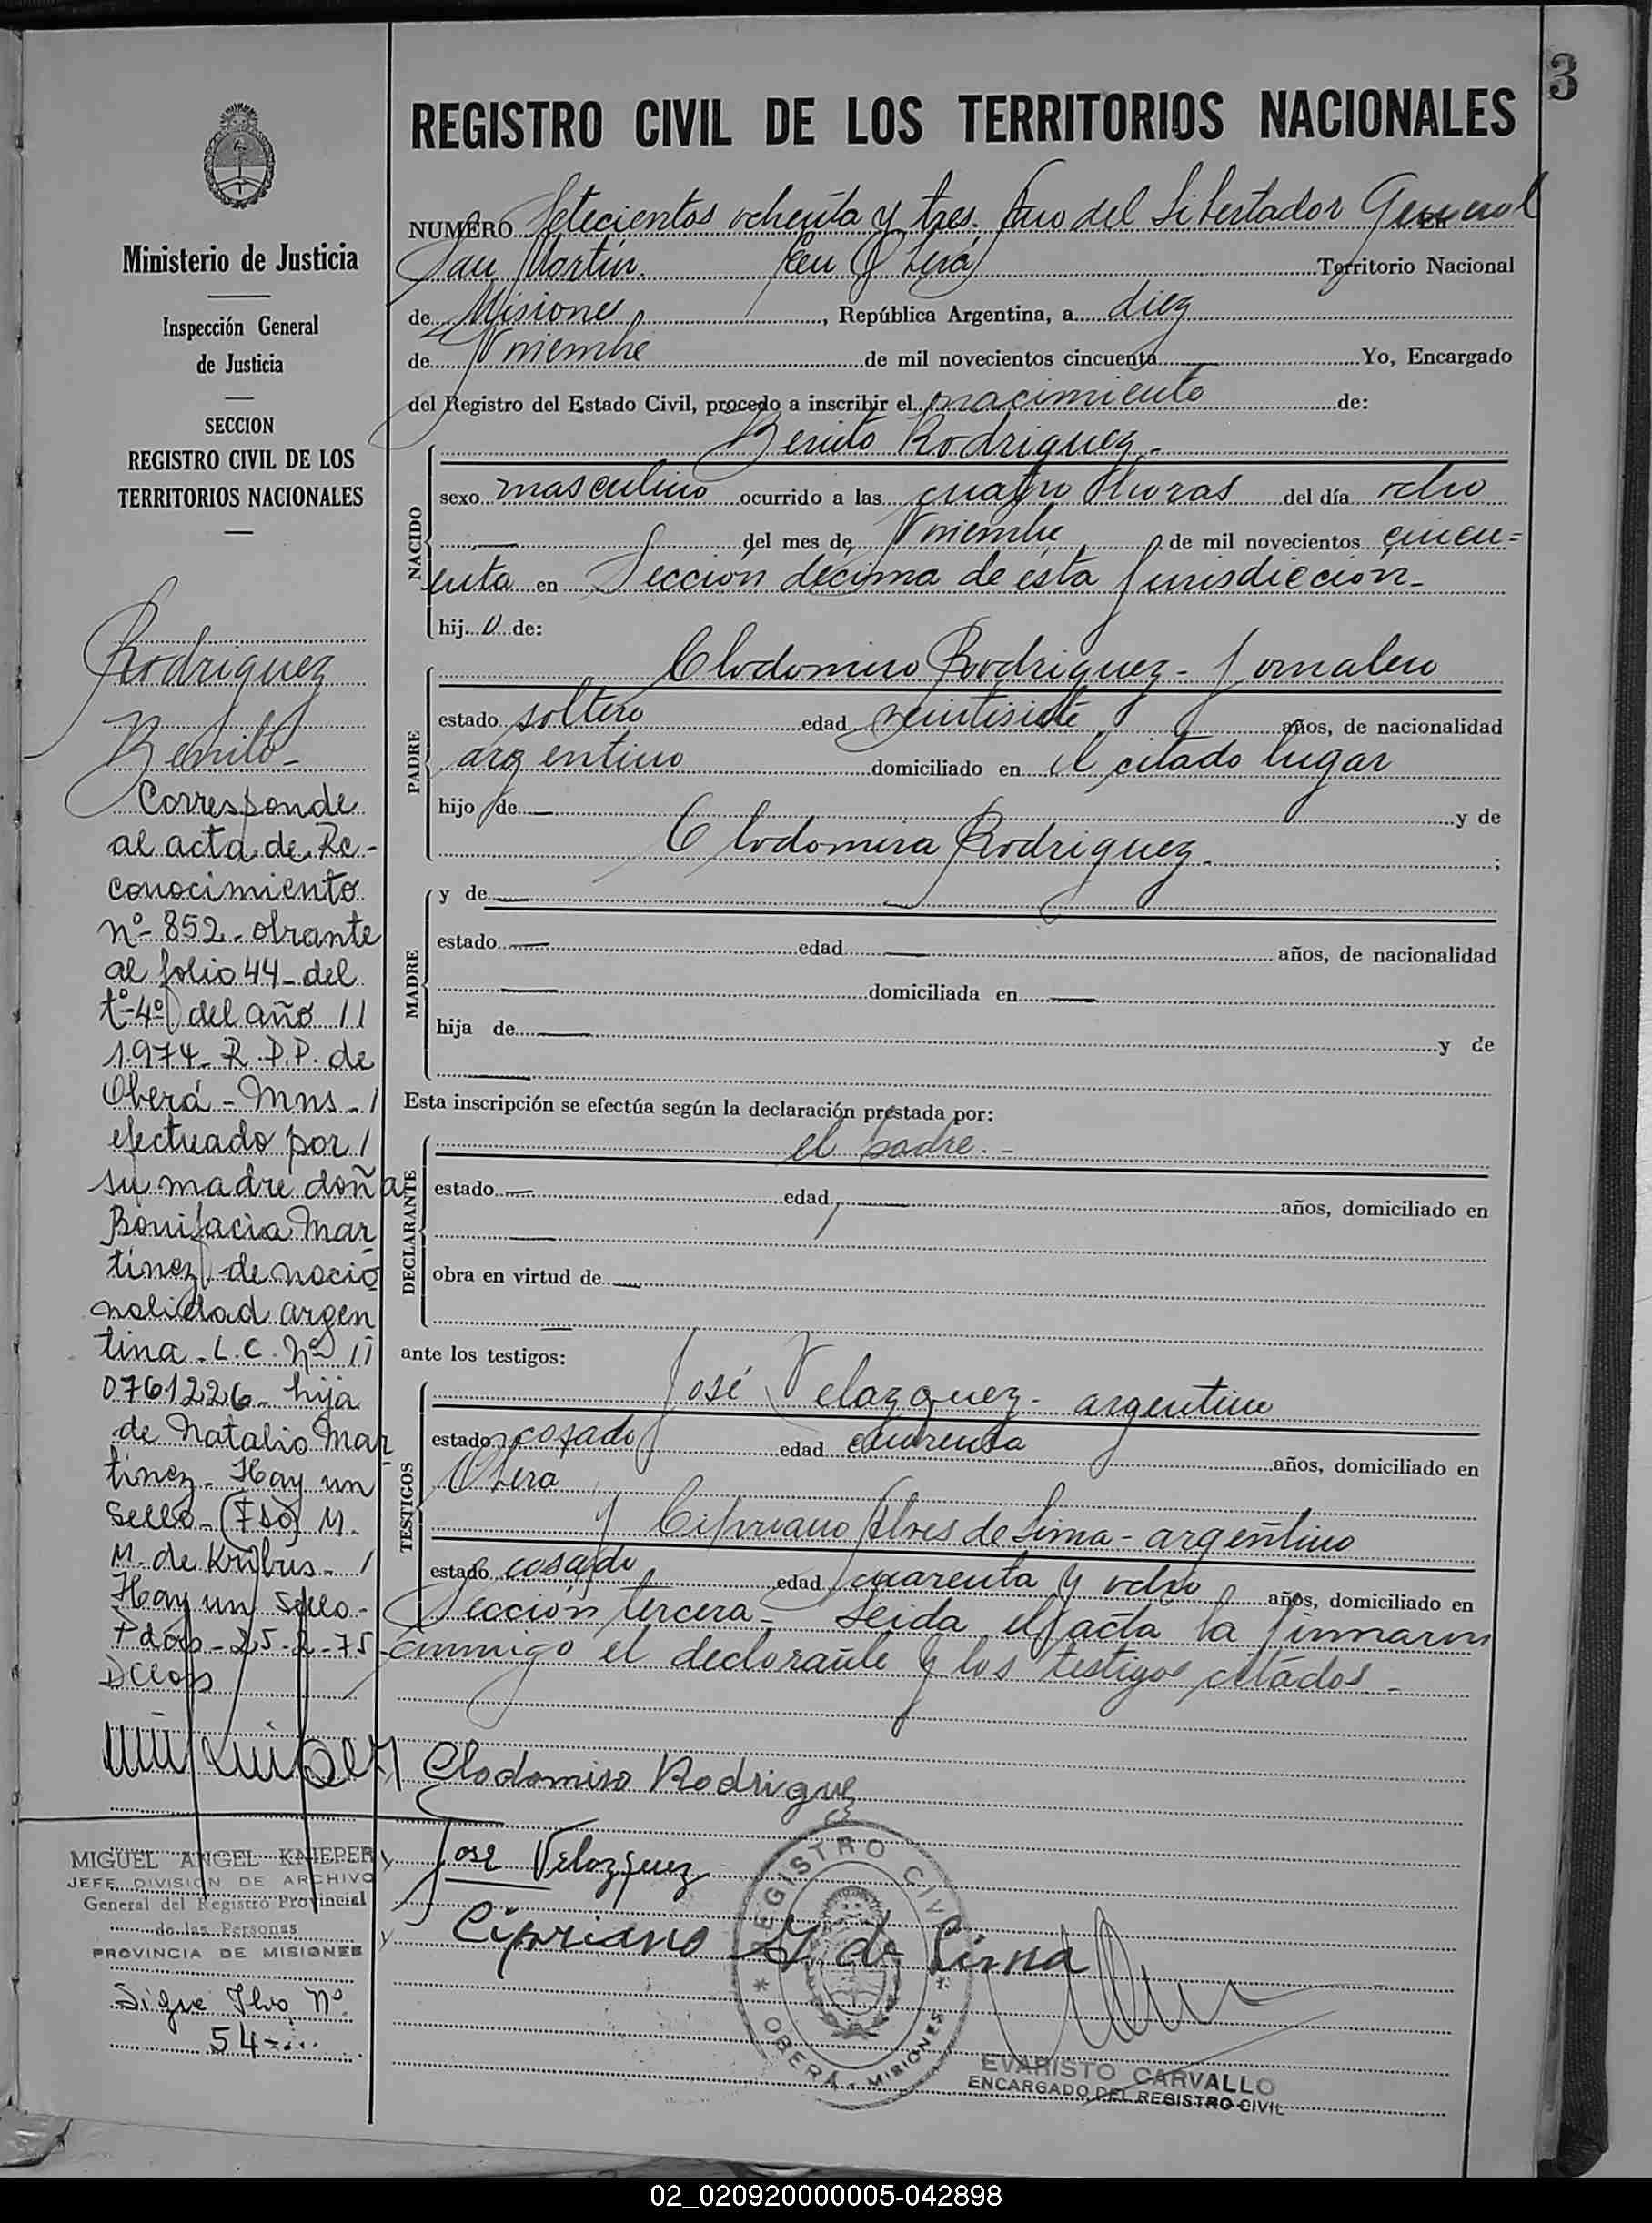 3
REGISTRO CIVIL DE LOS TERRITORIOS NACIONALES
Ministerio de Justicia
Inspección General
de Justicia
SECCION
REGISTRO CIVIL DE LOS
TERRITORIOS NACIONALES
NUMERO Setecientos ochenta y tres. Año del Libertador General
San Martín. En Oberá Territorio Nacional
de Misiones, República Argentina, a diez
de Noviembre de mil novecientos cincuenta Yo, Encargado
del Registro del Estado Civil, procedo a inscribir el nacimiento de:
NACIDO
Benito Rodriguez.-
sexo masculino ocurrido a las cuatro horas del día ocho
del mes de Noviembre de mil novecientos cincu=
enta en Sección décima de esta Jurisdicción-
hij o de:
PADRE
Clodomiro Rodriguez - Jornalero
estado soltero edad veintisiete años, de nacionalidad
argentino domiciliado en el citado lugar
hijo de — y de
Clodomira Rodriguez. ;
MADRE
y de —
estado — edad — años, de nacionalidad
— domiciliada en —
hija de — y de
—
Esta inscripción se efectúa según la declaración prestada por:
DECLARANTE
el padre.-
estado — edad — años, domiciliado en
—
obra en virtud de —
—
ante los testigos:
TESTIGOS
José Velazquez - argentino
estado casado edad cuarenta años, domiciliado en
Oberá
y Cipriano Alves de Lima - argentino
estado casado edad cuarenta y ocho años, domiciliado en
Sección tercera - Leida el acta la firmaron
conmigo el declarante y los testigos citados.-
Clodomiro Rodriguez
Jose Velozquez
Cipriano A. de Lima
REGISTRO CIVIL
* OBERÁ - MISIONES *
EVARISTO CARVALLO
ENCARGADO DEL REGISTRO CIVIL
Rodriguez
Benito-
Corresponde
al acta de Re-
conocimiento
nº- 852- obrante
al folio 44- del
tº-4º del año //
1.974- R.P.P. de
Oberá - Mns - /
efectuado por /
su madre doña
Bonifacia Mar
tinez de nacio
nalidad argen
tina - L.C. Nº //
0761226- hija
de Natalio Mar
tinez - Hay un
sello - (Fdo) M.
M. de - /
Hay un sello -
Pdas - 25-2-75
MIGUEL ANGEL KNIEPER
JEFE DIVISION DE ARCHIVO
General del Registro Provincial
de las Personas
PROVINCIA DE MISIONES
Sigue Nº
54-
02_020920000005-042898